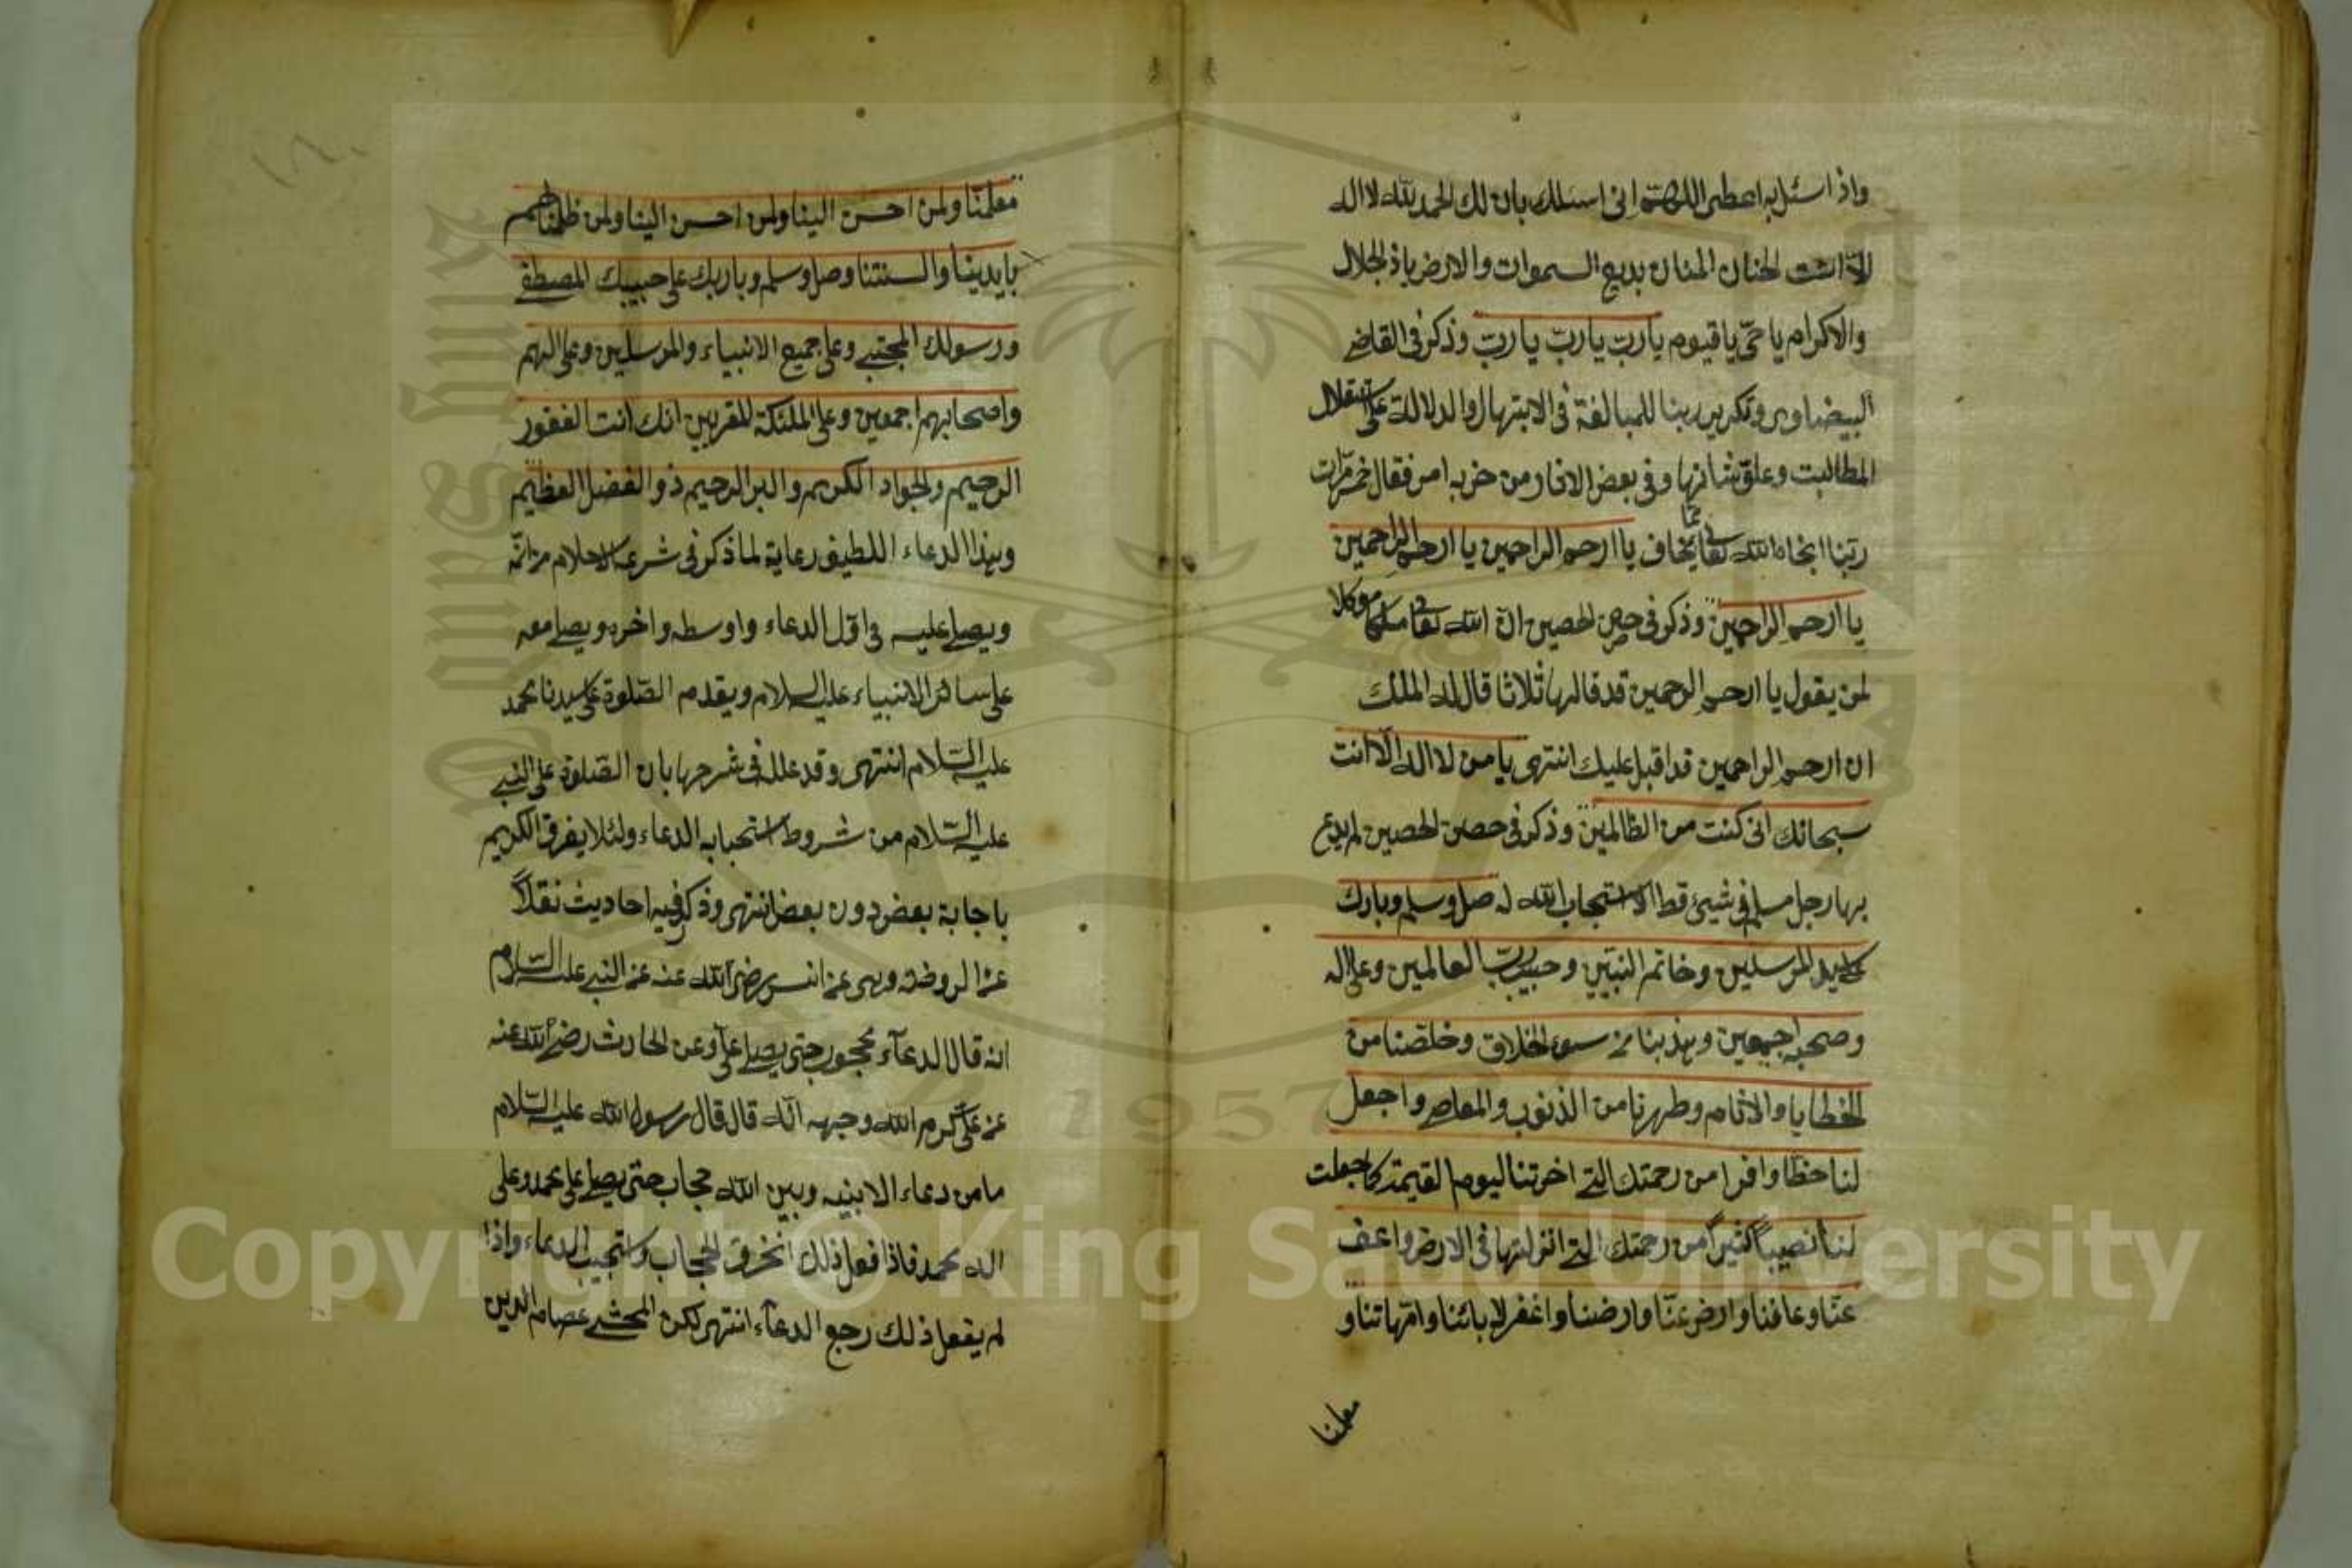 واذا سئل به اعطى اللهم انى اسئلك بان لك الحمد لله لا اله
الا انت الحنان المنان بديع السموات والارض ياذ الجلال
والاكرام يا حى يا قيوم يا رب يا رب يا رب وذكر فى القاضى
البيضاوى وتكرير ربنا للمبالغة فى الابتهال والدلالة على استقلال
المطالبت وعلو شانها وفى بعض الاثار من حزبه امر فقال خمس مرات
ربنا انجاه الله تعالى مما يخاف يا ارحم الراحمين يا ارحم الراحمين
يا ارحم الراحمين وذكر فى حصن الحصين ان الله تعالى ملكا موكلا
لمن يقول يا ارحم الرحمين قد قالها ثلاثا قال له الملك
ان ارحم الراحمين قد اقبل عليك انتهى يا من لا اله الا انت
سبحانك انى كنت من الظالمين وذكر فى حصن الحصين لم يدع
بها رجل مسلم فى شيئ قط الا استجاب الله له صل وسلم وبارك
على سيد المرسلين وخاتم النبيين وحبيب رب العالمين وعلى اله
وصحبه اجمعين وهذبنا من سوء الاخلاق وخلصنا من
الخطايا والاثام وطهرنا من الذنوب والمعاصى واجعل
لنا حظا وافرا من رحمتك التى اخرتنا اليوم القيمة كما جعلت
لنا نصيبا كثيرا من رحمتك التى انزلتها فى الارض واعف
عنا وعافنا وارض عنا وارضنا واغفر لابائنا وامهاتنا و
معلمنا
معلمنا ولمن احسن الينا ولمن احسن الينا ولمن ظلمناهم
بايدينا والسنتنا وصل وسلم وبارك على حبيبك المصطفى
ورسولك المجتبى وعلى جميع الانبياء والمرسلين وعلى الهم
واصحابهم اجمعين وعلى الملئكة المقربين انك انت الغفور
الرحيم والجواد الكريم والبر الرحيم ذو الفضل العظيم
وبهذا الدعاء اللطيف رعاية لما ذكر فى شرعة الاسلام من انه
ويصلى عليه فى اول الدعاء واوسطه واخره ويصلى معه
على سائر الانبياء عليه السلام ويقدم الصلوة على سيدنا محمد
عليه السلام انتهى وقد علله فى شرحها بان الصلوة على النبى
عليه السلام من شروط استحبابه الدعاء ولئلا يفرق الكريم
باجابة بعض دون بعض انتهى وذكر فيه احاديث نقلا
عن الروضة وهى عن انس رضى الله عنه عن النبى عليه السلام
انه قال الدعاء محجوب حتى يصلى على وعن الحارث رضى الله عنه
عن على كرم الله وجهه انه قال قال رسول الله عليه السلام
ما من دعاء الا بينه وبين الله حجاب حتى يصلى على محمد وعلى
اله محمد فاذا فعل ذلك انخرق الحجاب واستجيب الدعاء واذا
لم يفعل ذلك رجع الدعاء انتهى لكن المحشى عصام الدين
Copyright © King Saud University
1957